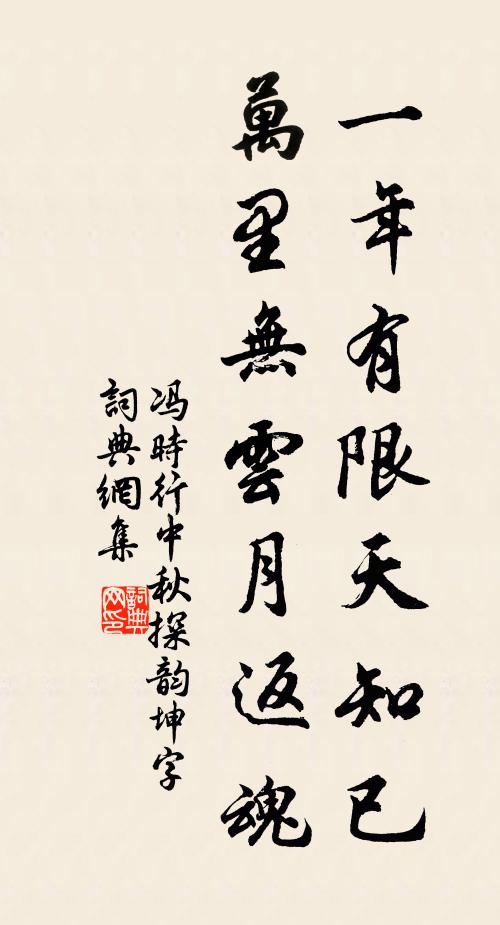 一年有限天知已
萬里無雲月返魂
冯時行中秋探韵坤字
詞典網集
詞典网印